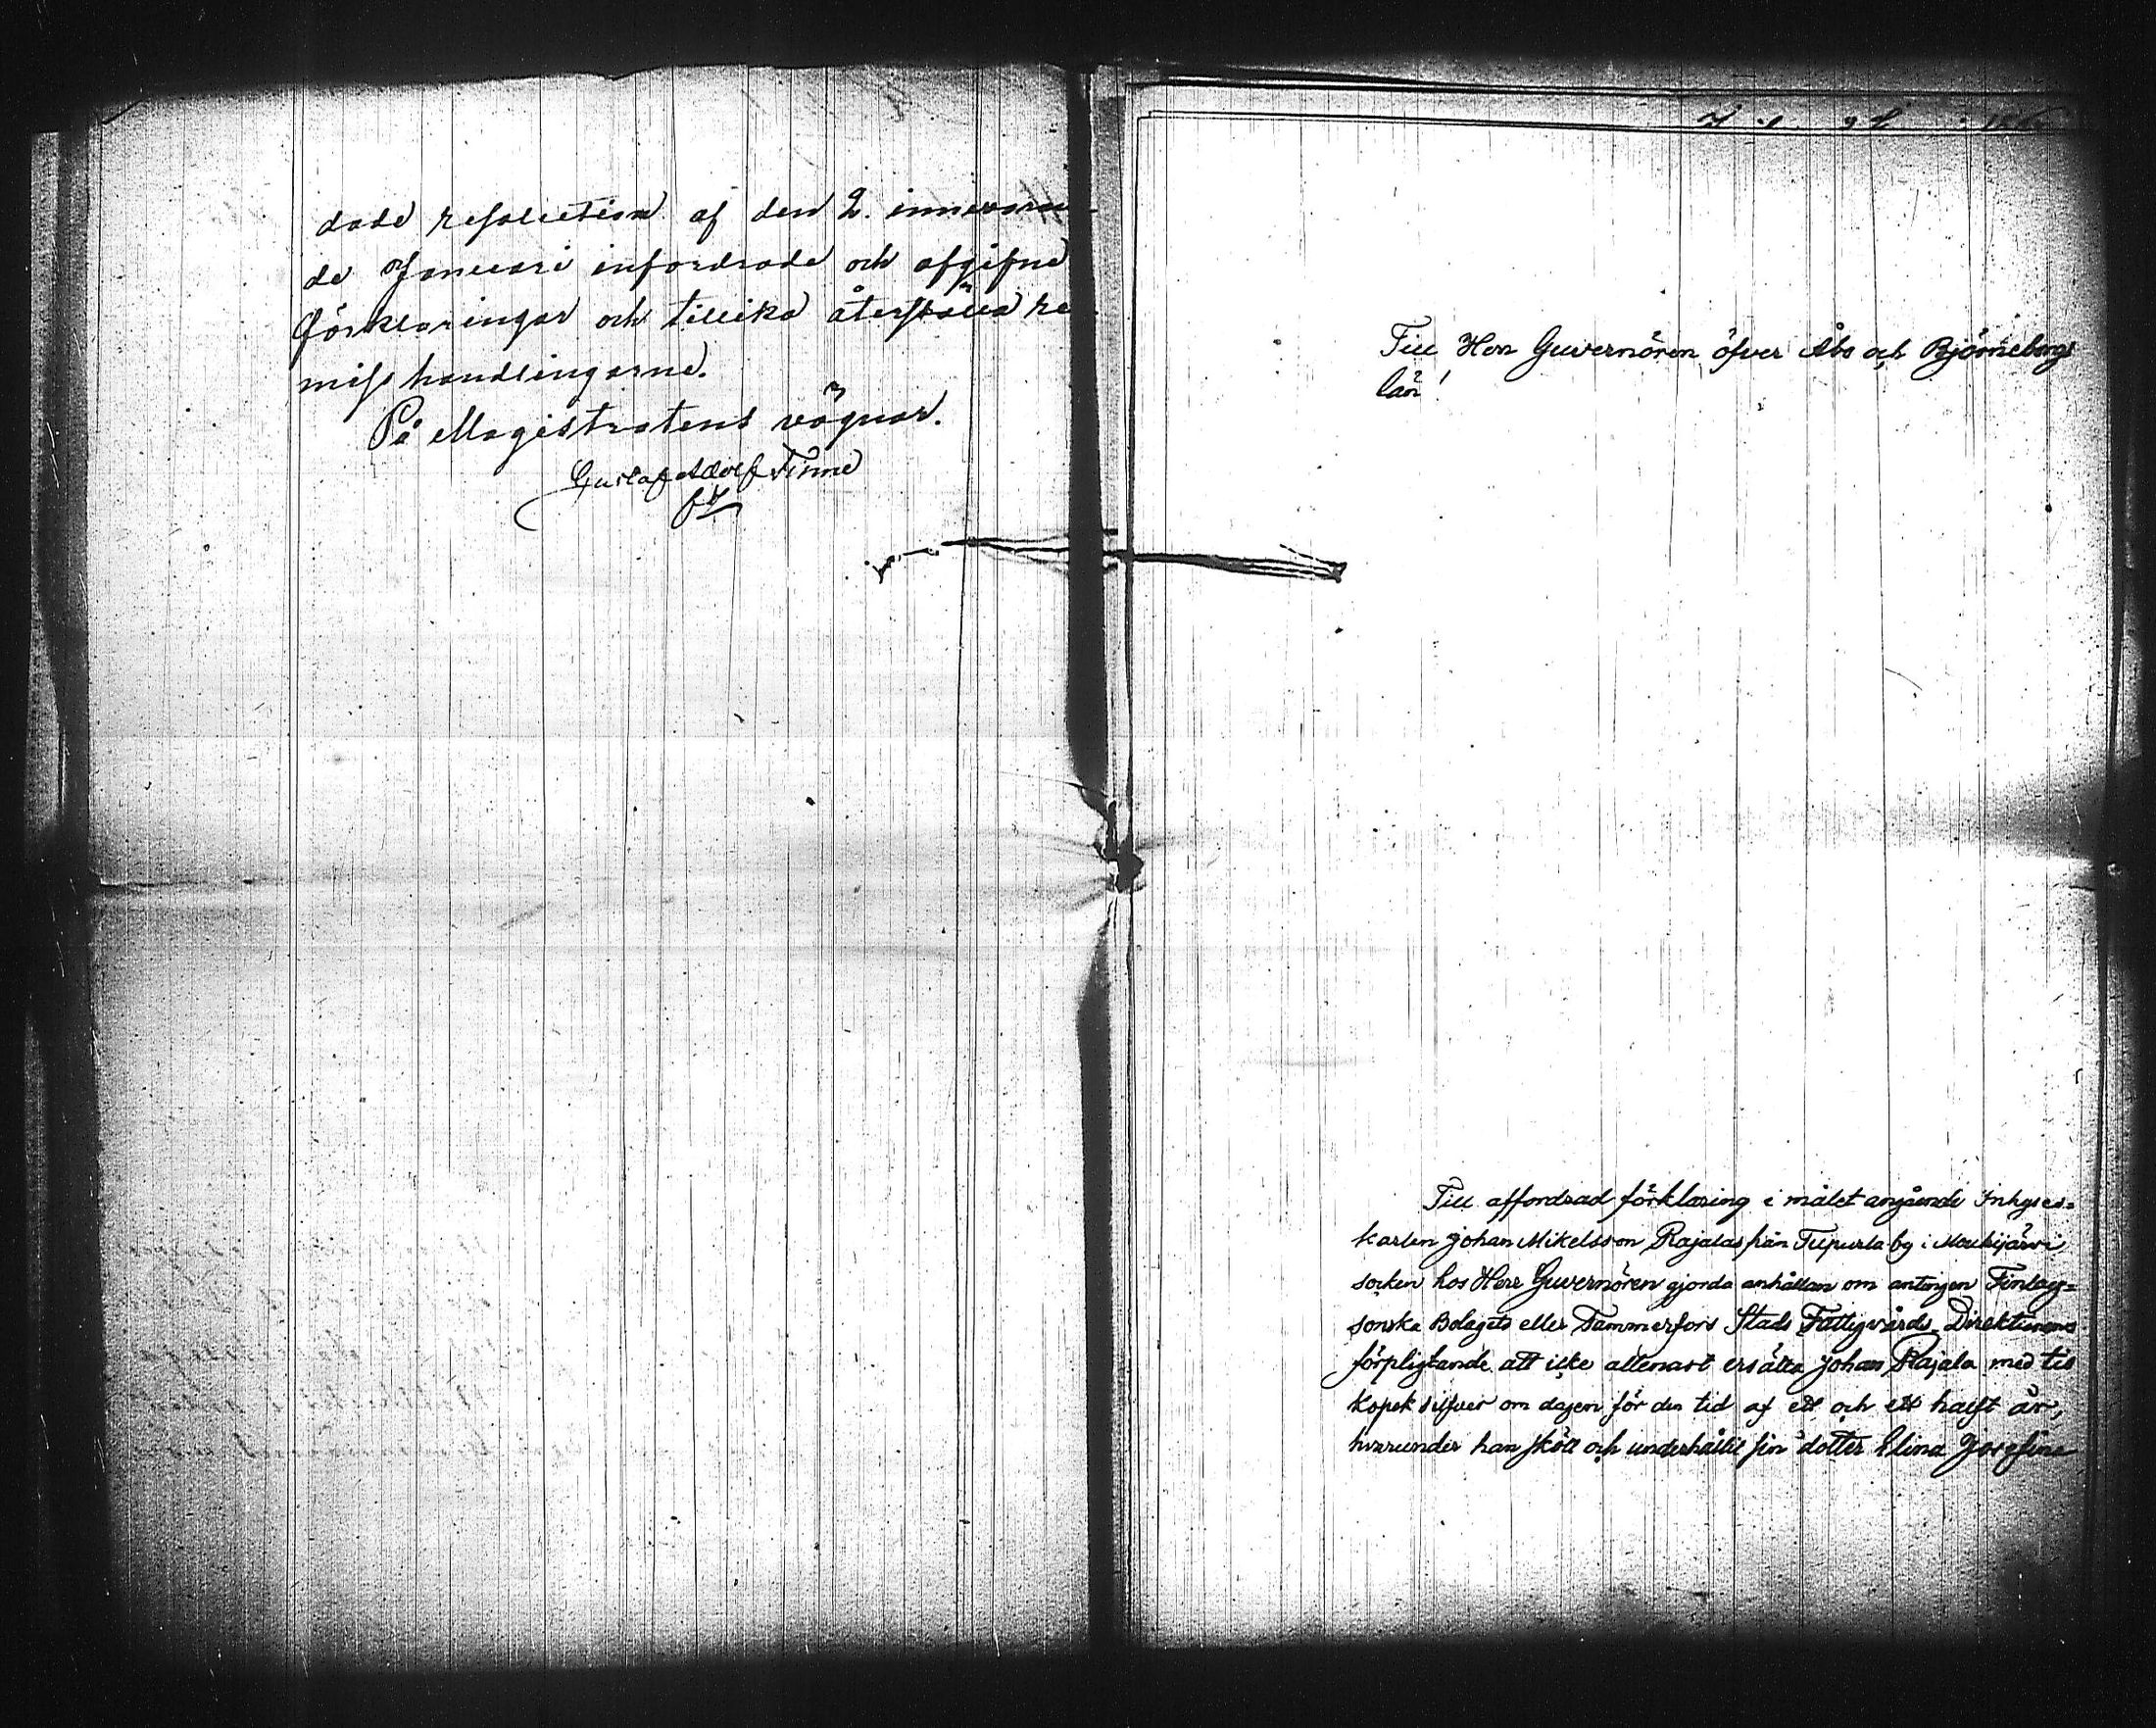 dade resolution af den 2. innevaran-
de Januari infordrade och afgifne
förklaringar och tillika återställa re-
misshandlingarne.
På Magistratens vägnar.
Gustaf Adolf Finne
Till Herr Guvernören öfver Åbo och Björneborgs
län!
Till affordrad förklaring i målet angående Inhyses-
karlen Johan Mikelsson Rajalas från Tupurla by i Mouhijärvi
socken hos Herr Guvernören gjorda anhållan om antingen Finlay-
sonska Bolagets eller Tammerfors Stads Fattigvårds Direktions
förpligtande att icke allenast ersätta Johan Rajala med tio
kopek silfver om dagen för den tid af ett och ett halft år,
hvarunder han skött och underhållit sin dotter Elina Josefina